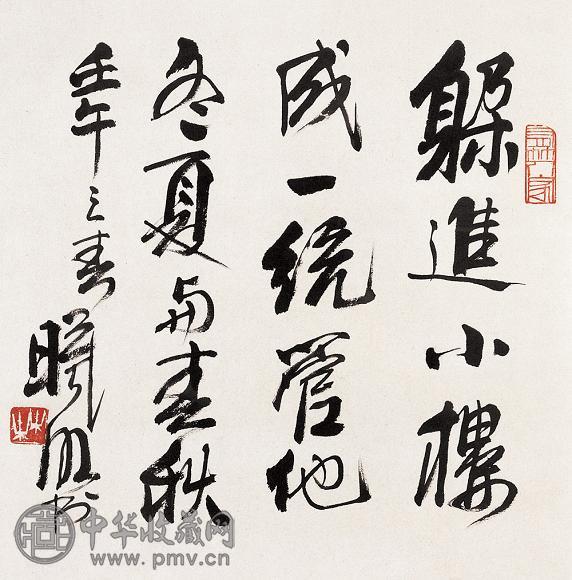 躲進小樓
成一統管他
冬夏与春秋
壬午之春
曦明书
中华收藏网
www.pmv.cn